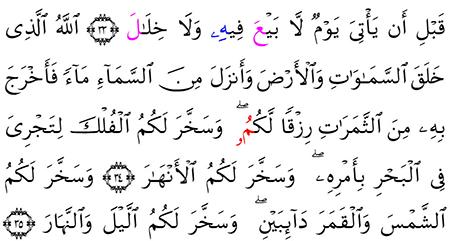 قَبْلِ أَن يَأْتِىَ يَوْمٌ لَّا بَيْعَ فِيهِۦ وَلَا خِلَٰلَ ٣٣ ٱللَّهُ ٱلَّذِى
خَلَقَ ٱلسَّمَٰوَٰتِ وَٱلْأَرْضَ وَأَنزَلَ مِنَ ٱلسَّمَآءِ مَآءً فَأَخْرَجَ
بِهِۦ مِنَ ٱلثَّمَرَٰتِ رِزْقًا لَّكُمُۥ ۖ وَسَخَّرَ لَكُمُ ٱلْفُلْكَ لِتَجْرِىَ
فِى ٱلْبَحْرِ بِأَمْرِهِۦ ۖ وَسَخَّرَ لَكُمُ ٱلْأَنْهَٰرَ ٣٤ وَسَخَّرَ لَكُمُ
ٱلشَّمْسَ وَٱلْقَمَرَ دَآئِبَيْنِ ۖ وَسَخَّرَ لَكُمُ ٱلَّيْلَ وَٱلنَّهَارَ ٣٥